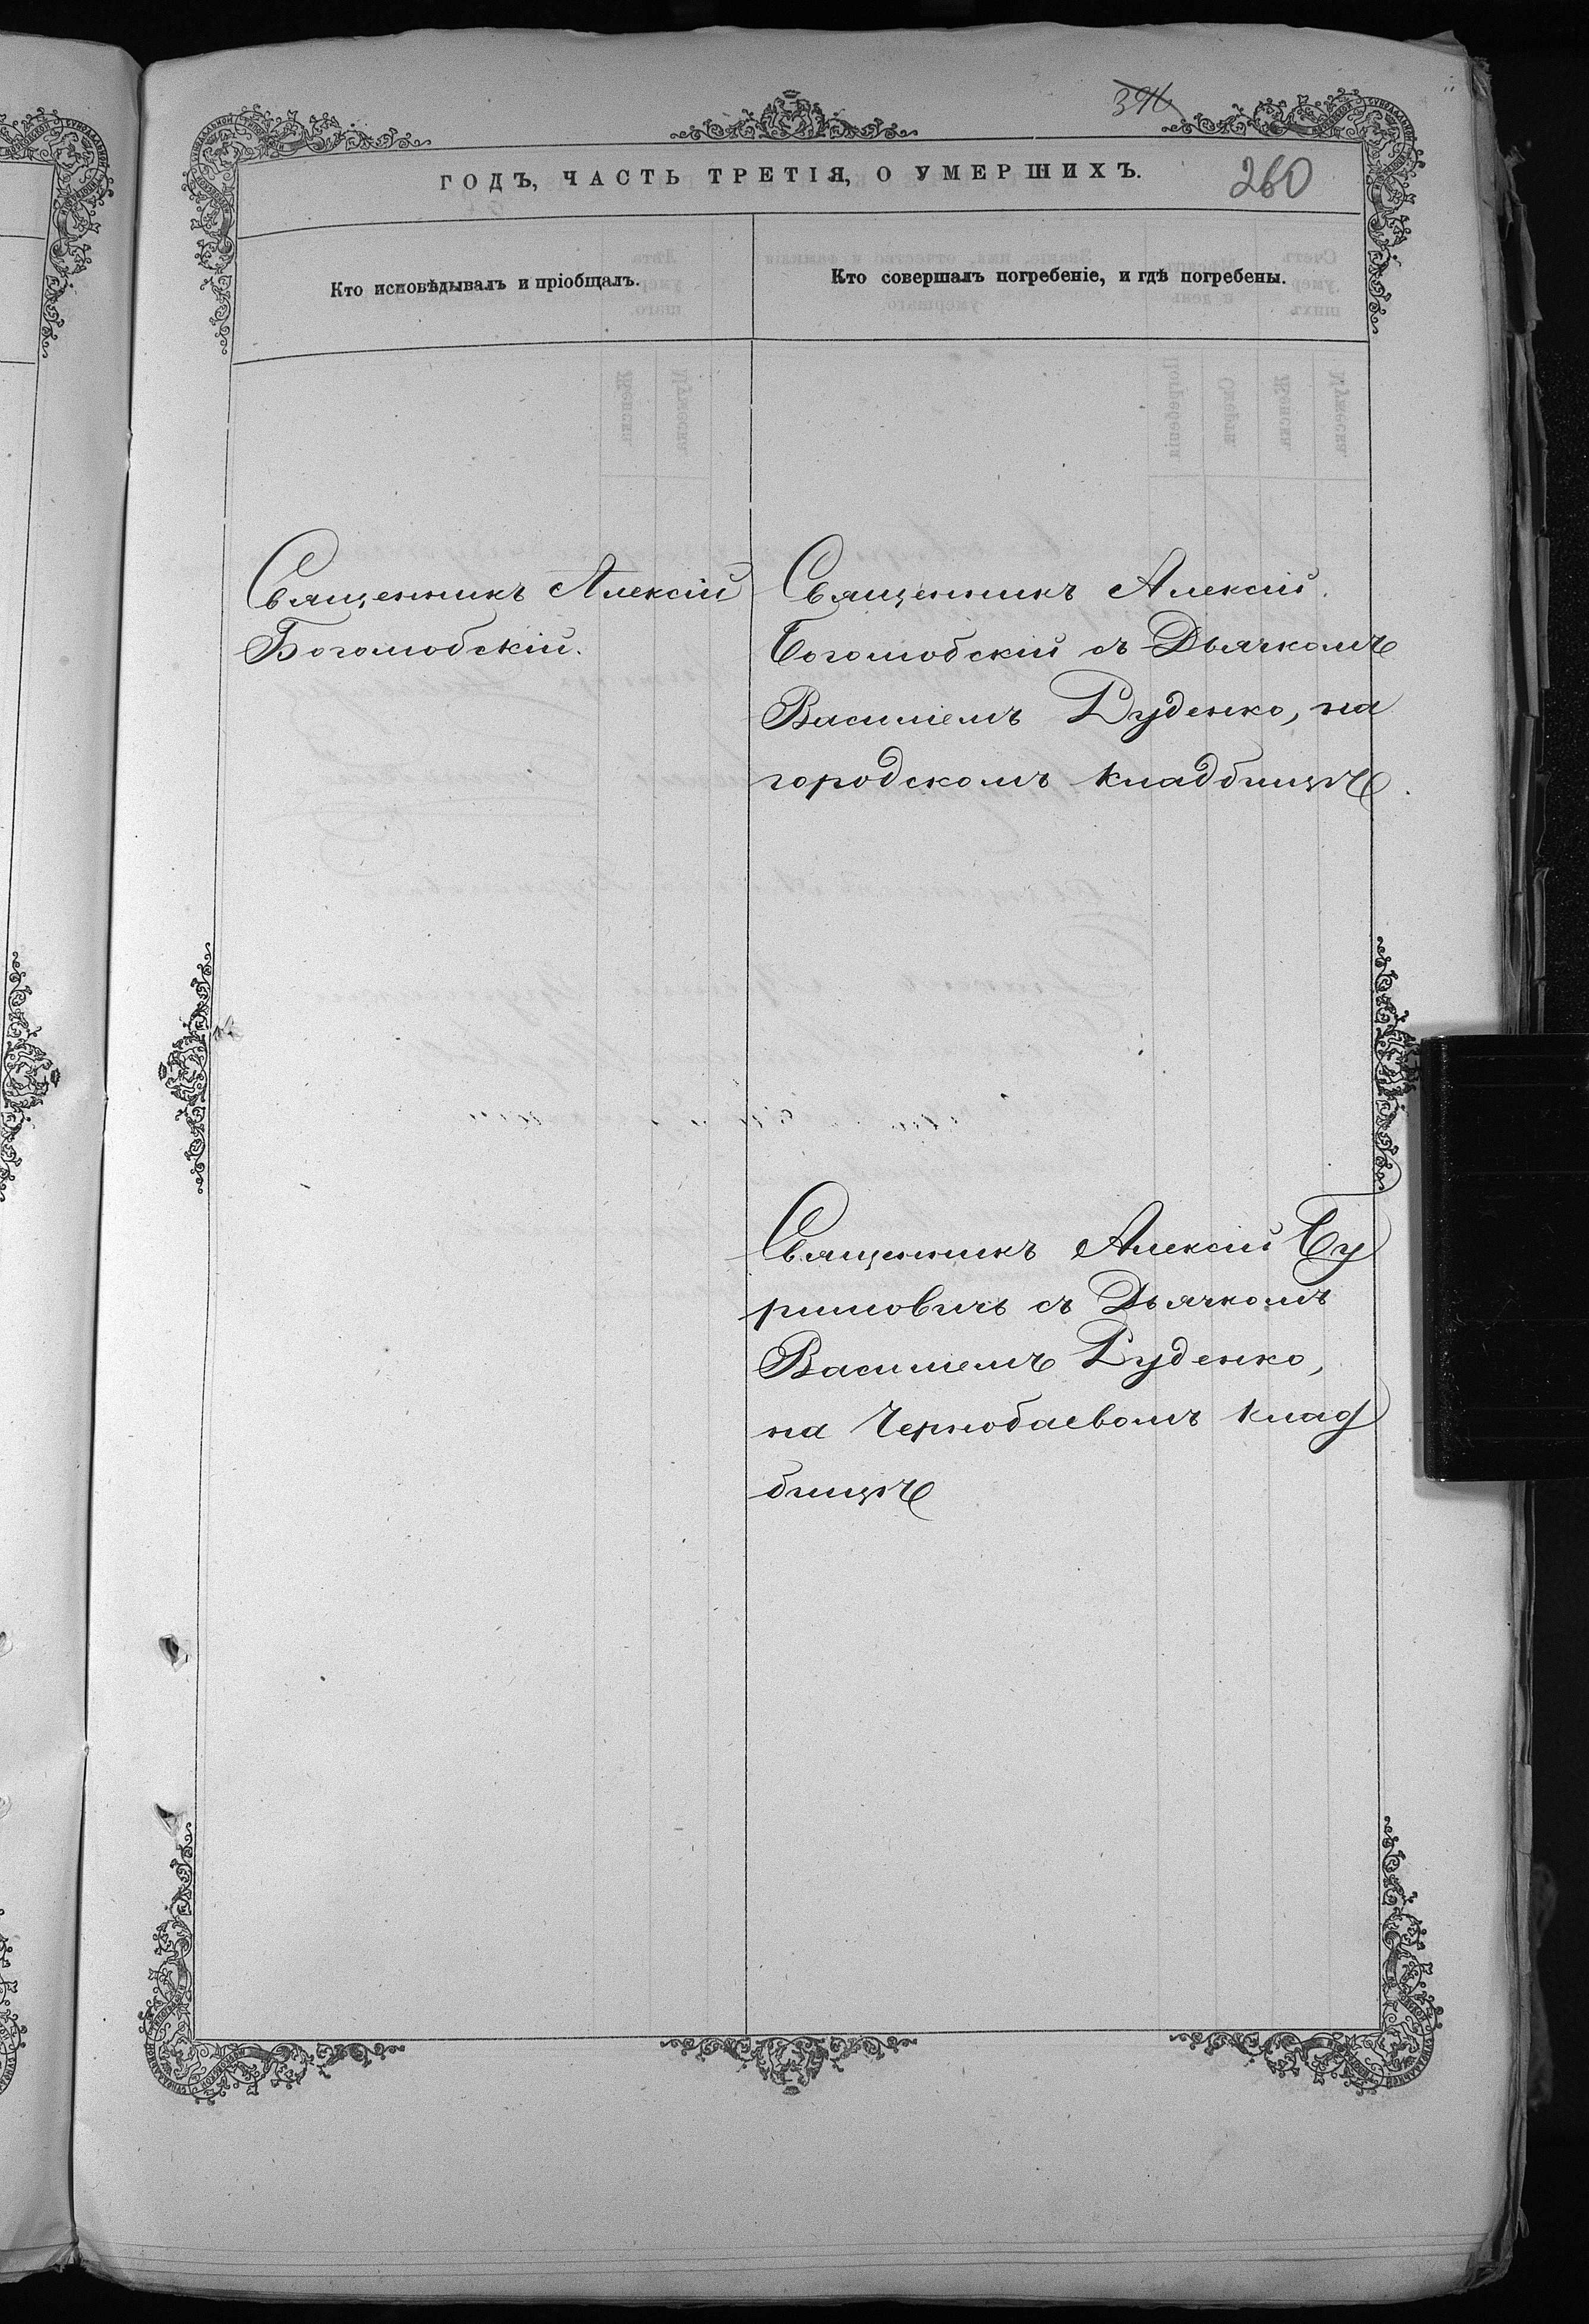 396
ГОДЪ, ЧАСТЬ ТРЕТІЯ, О УМЕРШИХЪ.
260
Кто исповѣдывалъ и пріобщалъ.
Кто совершалъ погребеніе, и гдѣ погребены.
Священникъ Алексій
Боголюбскій.
Священникъ Алексій
Боголюбскій съ Дьячкомъ
Василіемъ Руденко, на
городскомъ кладбищѣ.
Священникъ Алексій Бу
римовичъ съ Дьячкомъ
Василіемъ Руденко,
на Чернобаевомъ клад
бищѣ